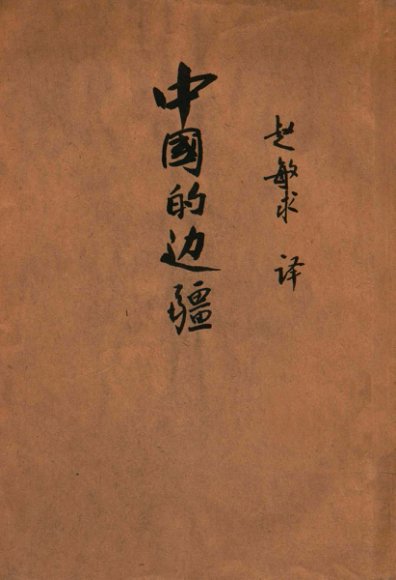 赵敏求 译
中國的边疆